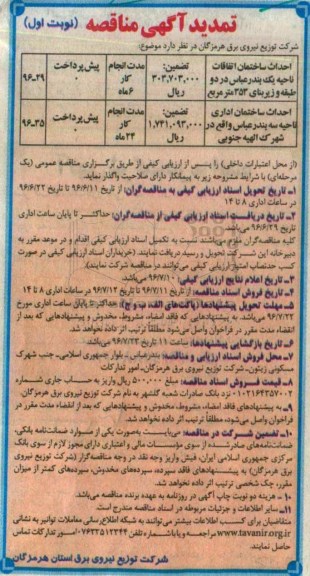 تمدید آگهی مناقصه (نوبت اول)
شرکت توزیع نیروی برق هرمزگان در نظر دارد موضوع:
احداث ساختمان اتفاقات ناحیه یک بندرعباس در دو طبقه و زیربنای ۲۵۳ متر مربع
تضمین: ۳۰۳,۷۰۳,۰۰۰ ریال
مدت انجام کار ۶ ماه
پیش پرداخت ۰
۹۶-۲۹
احداث ساختمان اداری ناحیه سه بندرعباس واقع در شهرک الهیه جنوبی
تضمین: ۱,۷۴۱,۰۹۳,۰۰۰ ریال
مدت انجام کار ۲۴ ماه
پیش پرداخت ۰
۹۶-۳۵
(از محل اعتبارات داخلی) را پس از ارزیابی کیفی از طریق برگزاری مناقصه عمومی (یک
مرحله‌ای) با شرایط مشروحه زیر به پیمانکار دارای صلاحیت واگذار نماید.
۱- تاریخ تحویل اسناد ارزیابی کیفی به مناقصه‌گران: از تاریخ ۹۶/۶/۱۱ تا تاریخ ۹۶/۶/۲۲
در ساعات اداری ۸ تا ۱۴
۲- تاریخ دریافت اسناد ارزیابی کیفی از مناقصه‌گران: حداکثر تا پایان ساعت اداری
تاریخ ۹۶/۶/۲۹ می‌باشد.
کلیه مناقصه‌گران ملزم می‌باشند نسبت به تکمیل اسناد ارزیابی کیفی اقدام و در موعد مقرر به
دبیرخانه این شرکت تحویل و رسید دریافت نمایند. (خریداران اسناد ارزیابی کیفی در صورت
کسب حدنصاب امتیاز ارزیابی کیفی می‌توانند در مناقصه شرکت نمایند).
۳- تاریخ اعلام نتایج ارزیابی کیفی: ۹۶/۷/۱۰ می‌باشد.
۴- تاریخ فروش اسناد مناقصه: از تاریخ ۹۶/۷/۱۱ تا تاریخ ۹۶/۷/۱۲ در ساعات اداری ۸ تا ۱۴
۵- مهلت تحویل پیشنهادها (پاکت‌های الف، ب و ج): حداکثر تا پایان ساعت اداری مورخ
۹۶/۷/۲۲ می‌باشد. به پیشنهادهایی که فاقد امضاء، مشروط، مخدوش و پیشنهادهایی که بعد از
انقضاء مدت مقرر در فراخوان واصل می‌شود مطلقاً ترتیب اثر داده نخواهد شد.
۶- تاریخ بازگشایی پیشنهادها: ساعت ۱۱ تاریخ ۹۶/۷/۲۳ می‌باشد.
۷- محل فروش اسناد ارزیابی و مناقصه: بندرعباس ـ بلوار جمهوری اسلامی ـ جنب شهرک
مسکونی زیتون ـ شرکت توزیع نیروی برق هرمزگان ـ امور تدارکات
۸- قیمت فروش اسناد مناقصه: مبلغ ۵۰۰,۰۰۰ ریال واریز به حساب جاری شماره
نزد بانک صادرات شعبه گلشهر به نام شرکت توزیع نیروی برق هرمزگان.
۹- به پیشنهادهای فاقد امضاء، مشروط، مخدوش و پیشنهادهایی که بعد از انقضاء مدت مقرر در
فراخوان واصل می‌شود، مطلقاً ترتیب اثر داده نخواهد شد.
۱۰- تضمین شرکت در مناقصه: می‌بایست به صورت یکی از موارد ضمانت‌نامه بانکی،
ضمانت‌نامه‌های صادرشده از سوی مؤسسات مالی و اعتباری دارای مجوز لازم از سوی بانک
مرکزی جمهوری اسلامی ایران، فیش واریز وجه نقد در وجه مناقصه‌گزار (شرکت توزیع
برق هرمزگان) به پیشنهادهای فاقد سپرده، سپرده‌های مخدوش، سپرده‌های کمتر از میزان
مقرر، چک شخصی ترتیب اثر داده نخواهد شد.
۱۰- هزینه دو نوبت چاپ آگهی در روزنامه به عهده برنده مناقصه می‌باشد.
۱۱- سایر اطلاعات و جزئیات مربوطه در اسناد مناقصه مندرج است
متقاضیان برای کسب اطلاعات بیشتر می‌توانند به شبکه اطلاع‌رسانی معاملات توانیر به نشانی
www.tavanir.org.ir مراجعه و یا با شماره تلفن ۰۷۶۳۳۵۱۲۳۴۴ ـ امور تدارکات تماس
حاصل نمایند.
شرکت توزیع نیروی برق استان هرمزگان